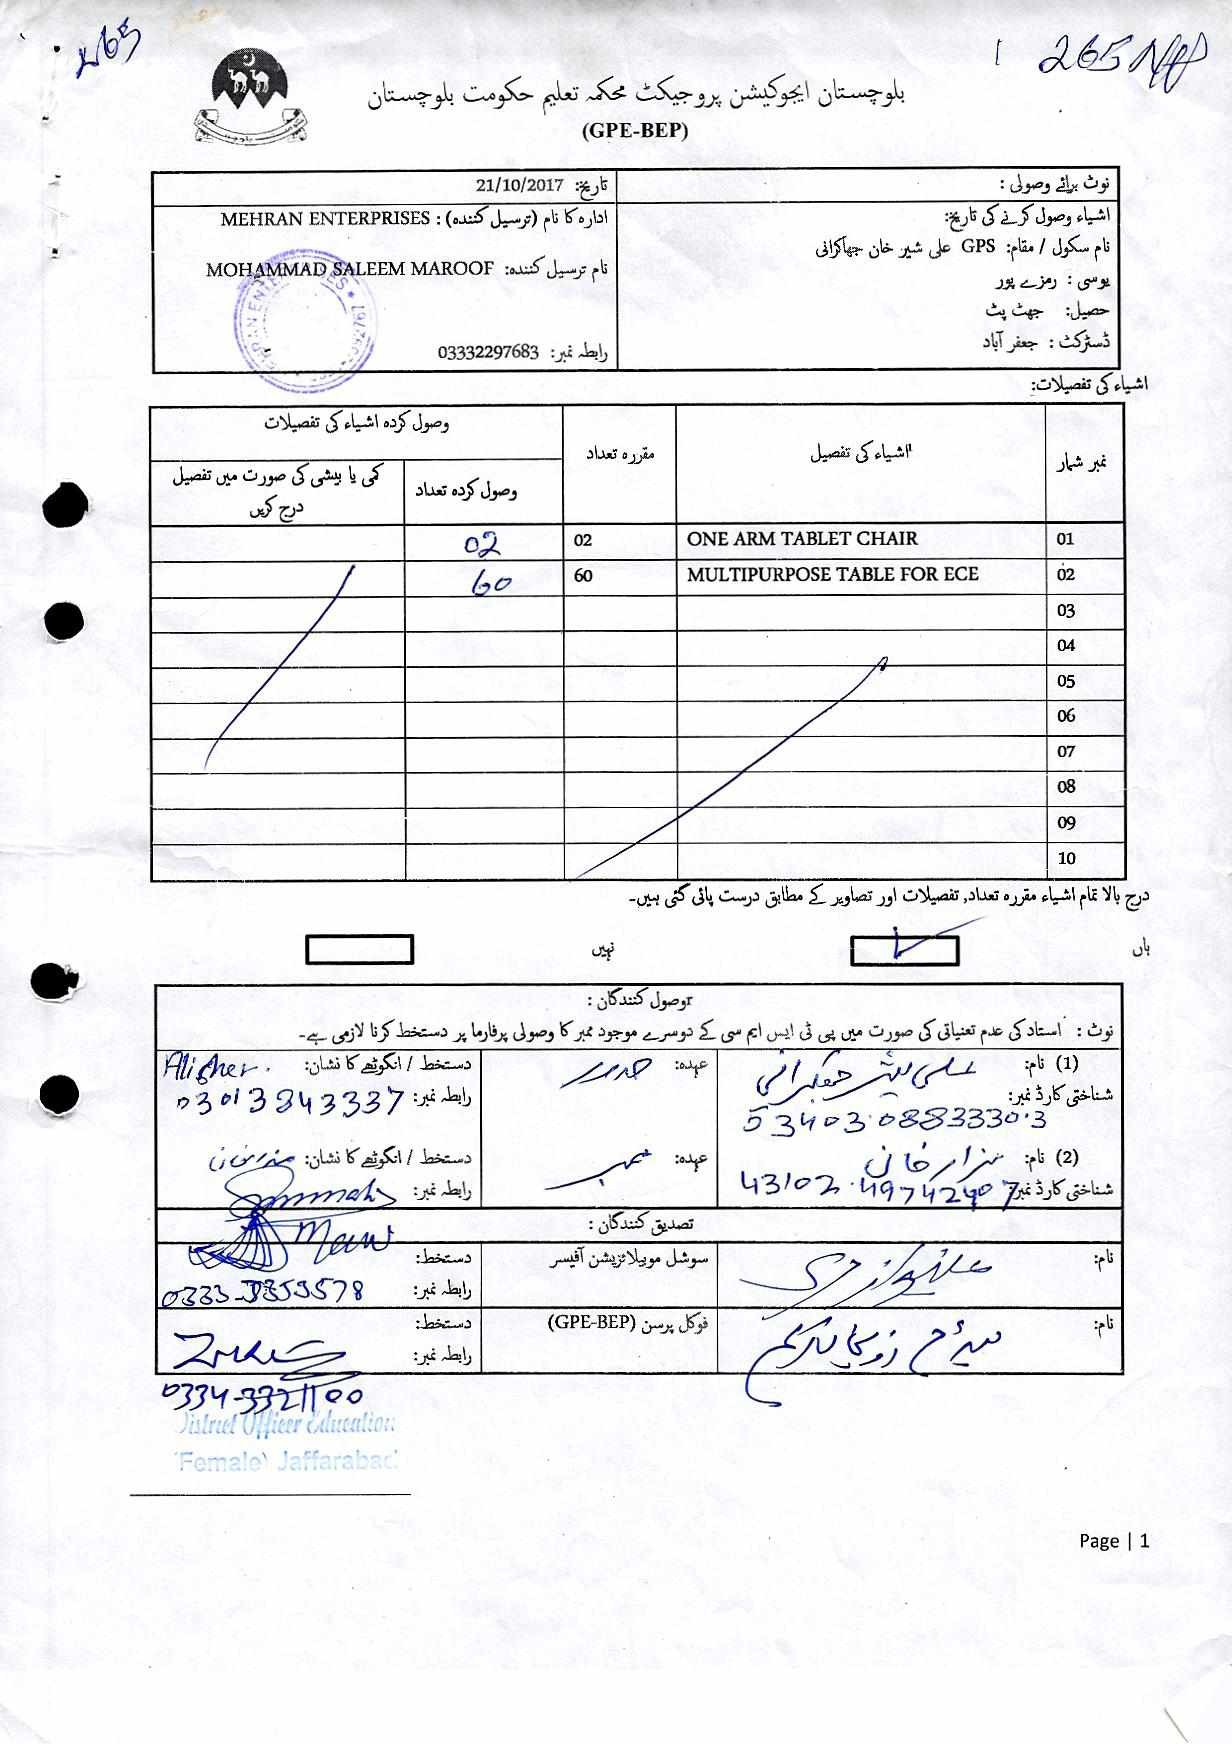 265
بلوچستان ایجوکیشن پروجیکٹ محکمہ تعلیم حکومت بلوچستان
(GPE-BEP)
نوٹ برائے وصولی :
اشیاء وصول کرنے کی تاریخ:
نام سکول / مقام: GPS علی شیر خان جھاکرانی
یوسی : رمزے پور
حصیل: جھٹ پٹ
ڈسٹرکٹ : جعفر آباد
تاریخ: 21/10/2017
ادارہ کا نام (ترسیل کنندہ) : MEHRAN ENTERPRISES
نام ترسیل کنندہ: MOHAMMAD SALEEM MAROOF
رابطہ نمبر: 03332297683
اشیاء کی تفصیلات:
نمبر شمار اشیاء کی تفصیل مقررہ تعداد وصول کردہ اشیاء کی تفصیلات
وصول کردہ تعداد کمی یا بیشی کی صورت میں تفصیل درج کریں
01 ONE ARM TABLET CHAIR 02 02
02 MULTIPURPOSE TABLE FOR ECE 60 60
03
04
05
06
07
08
09
10
درج بالا تمام اشیاء مقررہ تعداد, تفصیلات اور تصاویر کے مطابق درست پائی گئی ہیں۔
ہاں نہیں
وصول کنندگان :
نوٹ : استاد کی عدم تعنیاتی کی صورت میں پی ٹی ایس ایم سی کے دوسرے موجود ممبر کا وصولی پرفارما پر دستخط کرنا لازمی ہے۔
(1) نام: علی شیر جھکرانی عہدہ: صدر دستخط / انگوٹھے کا نشان: Alisher.
شناختی کارڈ نمبر: 53403.0883330.3 رابطہ نمبر: 03013843337
(2) نام: ہزار خان عہدہ: ممبر دستخط / انگوٹھے کا نشان:
شناختی کارڈ نمبر: 43102.49742407 رابطہ نمبر:
تصدیق کنندگان :
نام: سوشل موبیلائزیشن آفیسر دستخط:
رابطہ نمبر: 0333-3353578
نام: فوکل پرسن (GPE-BEP) دستخط:
رابطہ نمبر:
0334-3321100
District Officer Education
(Female) Jaffarabad
Page | 1